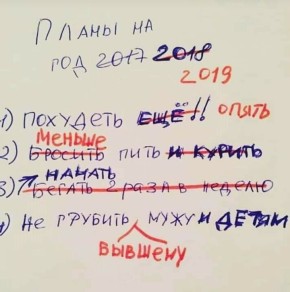 Планы на
год 2017 2018
2019
1) похудеть ещё!! опять
меньше
2) Бросить пить и курить
начать
3) Бегать 2 раза в неделю
4) не грубить мужу и детям
бывшему